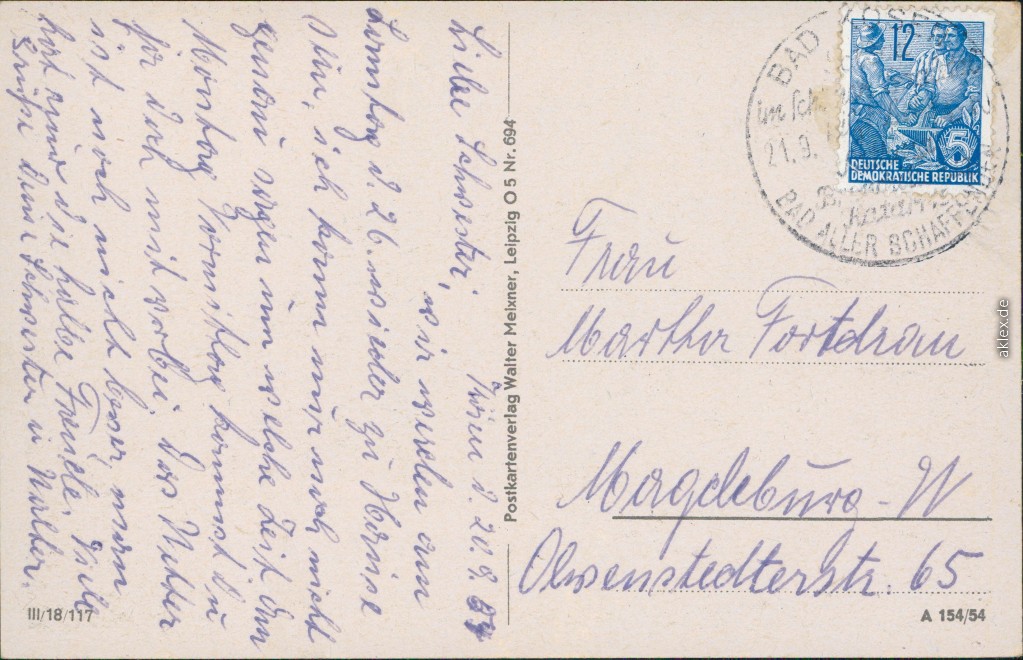 Kösen d. 20.9.54
Liebe Schwester, wir werden am
Sonntag d. 26. wieder zu Hause
sein, ich kann nur noch nicht
genau sagen um welche Zeit. Am
Montag Vormittag kommst Du
für doch mit vorbei. Das Wetter
ist noch nicht besser, man
hat nur die halbe Freude. Viele
Grüße Deine Schwester u Walter.
Postkartenverlag Walter Meixner, Leipzig O 5 Nr. 694
III/18/117
BAD KÖSEN
21.9.
Katarrhe
BAD ALLER SCHAFFENDEN
12
5
DEUTSCHE
DEMOKRATISCHE REPUBLIK
Frau
Martha Fortdran
Magdeburg-W
Olvenstedterstr. 65
A 154/54
aklex.de